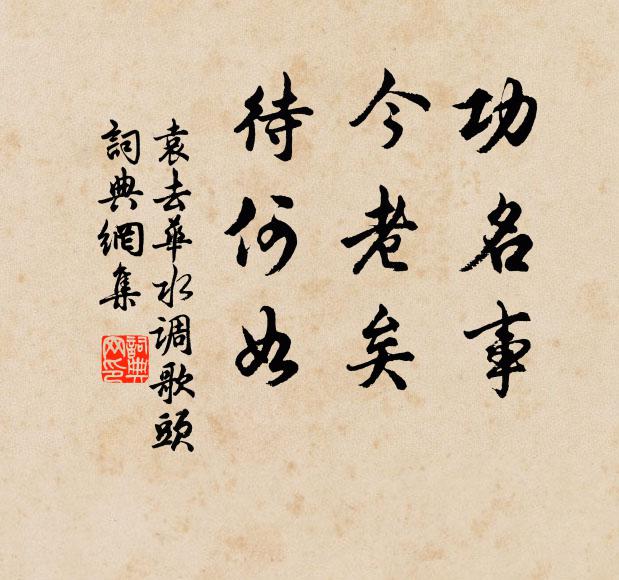 功名事
今老矣
待何如
袁去華水调歌頭
詞典網集
詞典網印